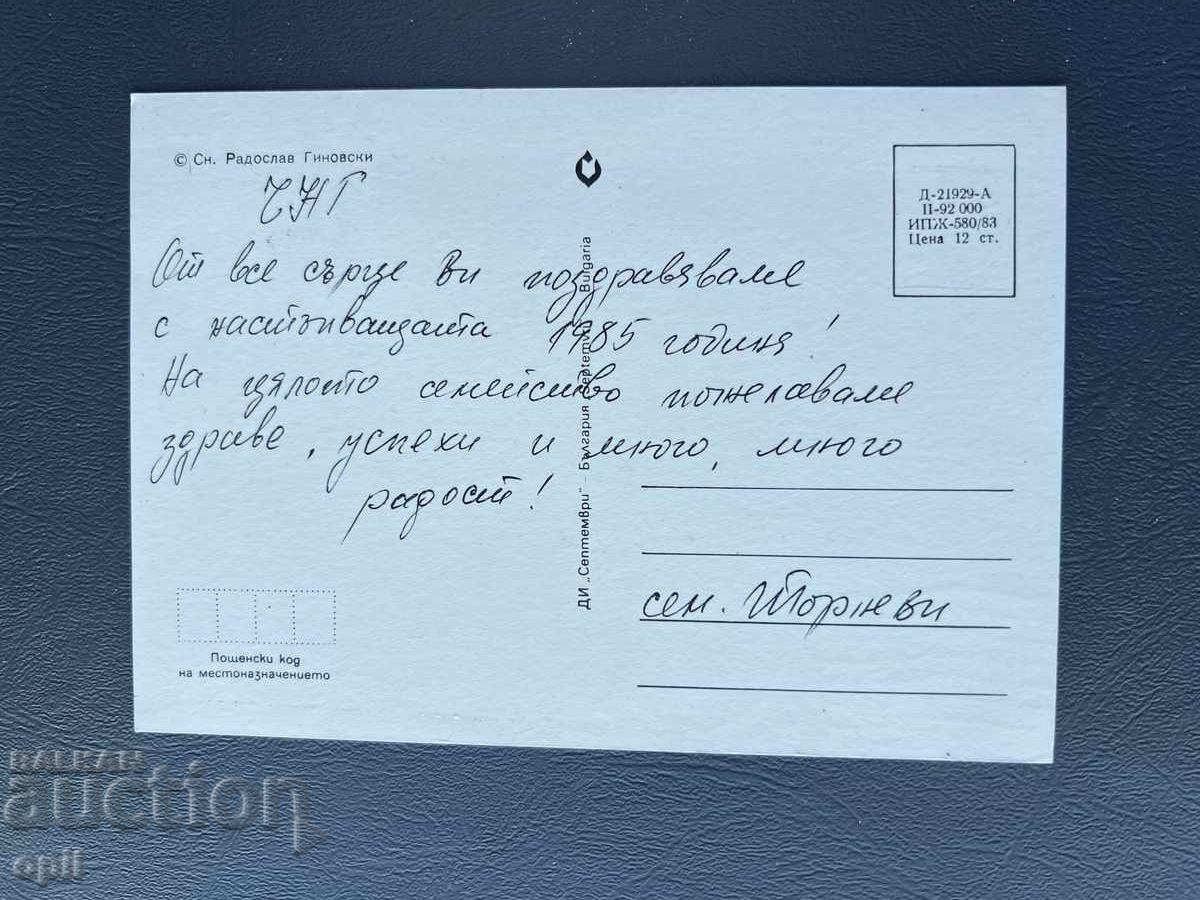 © Сн. Радослав Гиновски
ЧНГ
От все сърце Ви поздравяваме
с настъпващата 1985 година!
На цялото семейство пожелаваме
здраве, успехи и много, много
радост!
Д-21929-А
П-92 000
ИПЖ-580/83
Цена 12 ст.
ДИ „Септември“ - България Septemvri Bulgaria
сем.
Пощенски код
на местоназначението
БАЛКАН
auction
opil